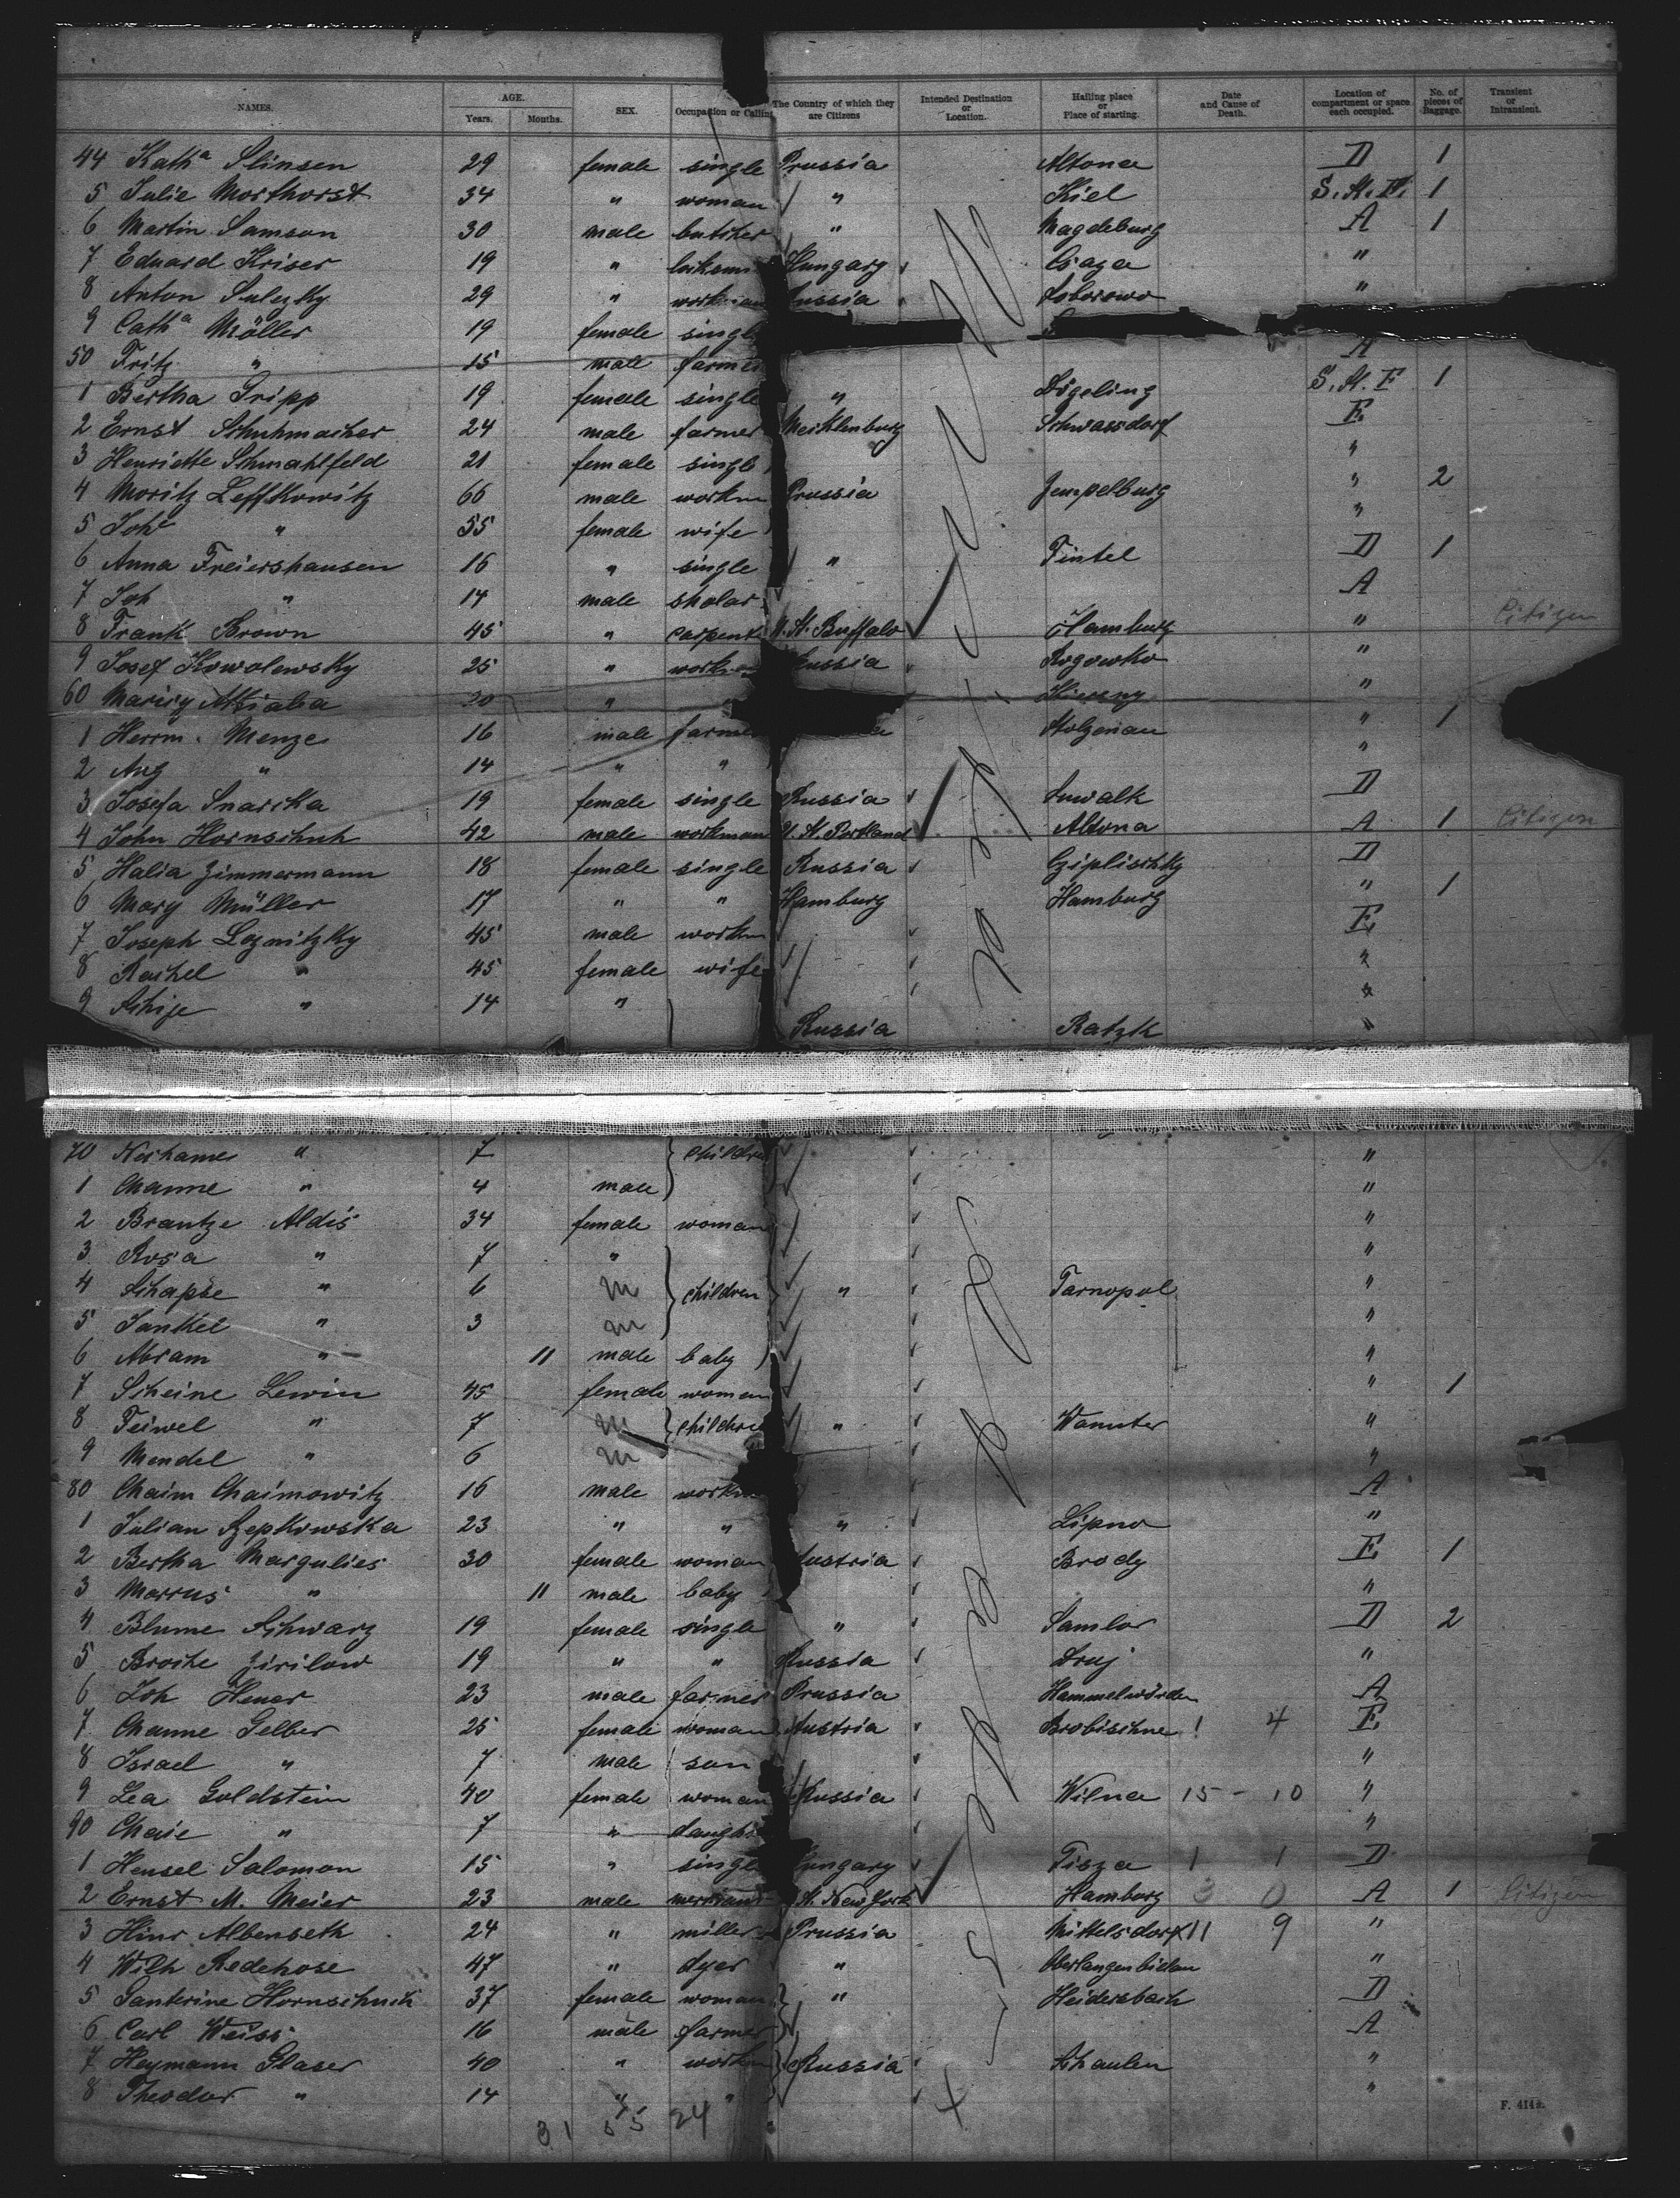 NAMES. AGE. Years. Months. SEX. Occupation or Calling The Country of which they are Citizens Intended Destination or Location. Hailing place or Place of starting. Date and Cause of Death. Location of compartment or space each occupied. No. of pieces of Baggage. Transient or Intransient.
44 Kath^a Slinsen 29 female single Prussia Altona D 1
5 Julie Morthorst 34 " woman " Kiel S.St.F. 1
6 Martin Samson 30 male butcher " Magdeburg A 1
7 Eduard Kriser 19 " Hungary Csaza "
8 Anton Sulezky 29 " workman Russia Soborowo "
9 Cath^a Möller 19 female single
50 Fritz " 15 male farmer A
1 Bertha Tripp 19 female single " Dögeling S.St.F 1
2 Ernst Schuhmacher 24 male farmer Mecklenburg Schwassdorf E
3 Henriette Schmahlfeld 21 female single "
4 Moritz Leffkowitz 66 male workm Prussia Zempelburg " 2
5 Joh^e " 55 female wife "
6 Anna Freiershausen 16 " single " Fintel D 1
7 Joh " 14 male sholar A
8 Frank Brown 45 " carpent U.St. Buffalo Hamburg " Citizen
9 Josef Kowolewsky 25 " workman Russia Rogowko "
60 20 " "
1 Herrm. Menze 16 male farmer Stolzenau " 1
2 Aug " 14 " " "
3 Josefa Snarska 19 female single Russia Suwalk D
4 John Hornschuh 42 male workman U.St. Portland Altona A 1 Citizen
5 Halia Zimmermann 18 female single Russia Cziplischky D
6 Mary Müller 17 " " Hamburg Hamburg " 1
7 Joseph Loznitzky 45 male workm E
8 Rachel " 45 female wife "
9 Schije " 14 " Russia Ratzk "
70 Nechame " 7 children "
1 Channe " 4 male "
2 Brantze Aldis 34 female woman "
3 Rosa " 7 " "
4 Schapse " 6 m children " Tarnopol "
5 Jankel " 3 m "
6 Abram " 11 male baby "
7 Scheine Lewin 45 female woman " 1
8 Feiwel " 7 m children " Wanuter "
9 Mendel " 6 m "
80 Chaim Chaimowitz 16 male workm A
1 Julian Szepkowska 23 " " " Lipno "
2 Bertha Margulies 30 female woman Austria Brody E 1
3 Marcus " 11 male baby "
4 Blume Schwarz 19 female single " Sambor D 2
5 Broche Zirilow 19 " " Russia Druj "
6 Joh Heuer 23 male farmer Prussia Hammelwörden A
7 Channe Gelber 25 female woman Austria Brobischne ! 4 E
8 Israel " 7 male son "
9 Lea Goldstein 40 female woman Russia Wilna 15 - 10 "
90 Chaie " 7 " daughter "
1 Hensel Salomon 15 " single Hungary Tisza 1 1 D
2 Ernst M. Meier 23 male merchant U.St. New York Hamburg 3 0 A 1 Citizen
3 Hinr. Albenseth 24 " miller Prussia Mittelsdorf 11 9 "
4 Wilh Redehose 47 " dyer " Oberlangenbielau "
5 Santerine Hornschuh 37 female woman " Heidersbach D
6 Carl Weiss 16 male farmer A
7 Heymann Glaser 40 " workm Russia Schaulen "
8 Theodor " 14 " " "
31 55 24
F. 414a.